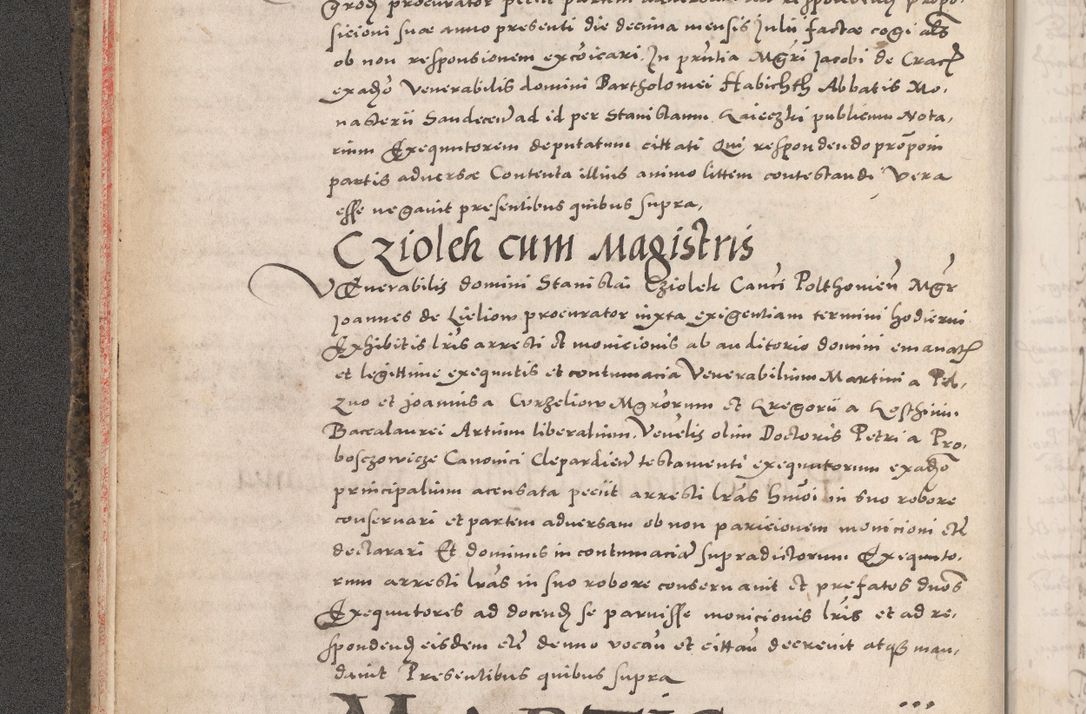 grodz procurator peciit partem adversam ad respondendum propo-
sicioni suae anno presenti die decima mensis Julii factae cogi als
ob non responsionem excoicari. In pñtia Mgri Jacobi de Crac
exadvo Venerabilis domini Bartholomei Habichth Abbatis Mo-
nasterii Sandecen ad id per Stanislaum Kaieczki publicum Nota-
rium Exequutorem deputatum cittati Qui respondendo propoñi
partis adversae Contenta illius animo littem contestandi Vera
esse negavit presentibus quibus supra.
Cziolek cum Magistris
Venerabilis domini Stanislai Cziolek Canci Polthovien Mgr
Joannes de Lieliow procurator iuxta exigentiam termini hodierni
Exhibitis lris arresti et monicionis ab auditorio domini emanat
et legittime exequutis et contumacia Venerabilium Martini a Pil-
zno et Joannis a Curzeliow Mgrorum et Gregorii a Kosthinu
Baccalaurei Artium liberalium. Venelis olim Doctoris Petri a Pro-
boszowicze Canonici Clepardien testamenti exequutorum exadvo
principalium accusata peciit arresti lras huiusmoi in suo robore
conservari et partem adversam ob non paricionem monicioni etc
declarari Et dominus in contumacia supradictorum Exequuto-
rum arresti lras in suo robore conservavit et prefatos duos
Exequutores ad docend se paruisse monicionis lris et ad re-
spondend eisdem etc denuo vocan et cittan decrevit atque man-
davit Presentibus quibus supra
MARTIS